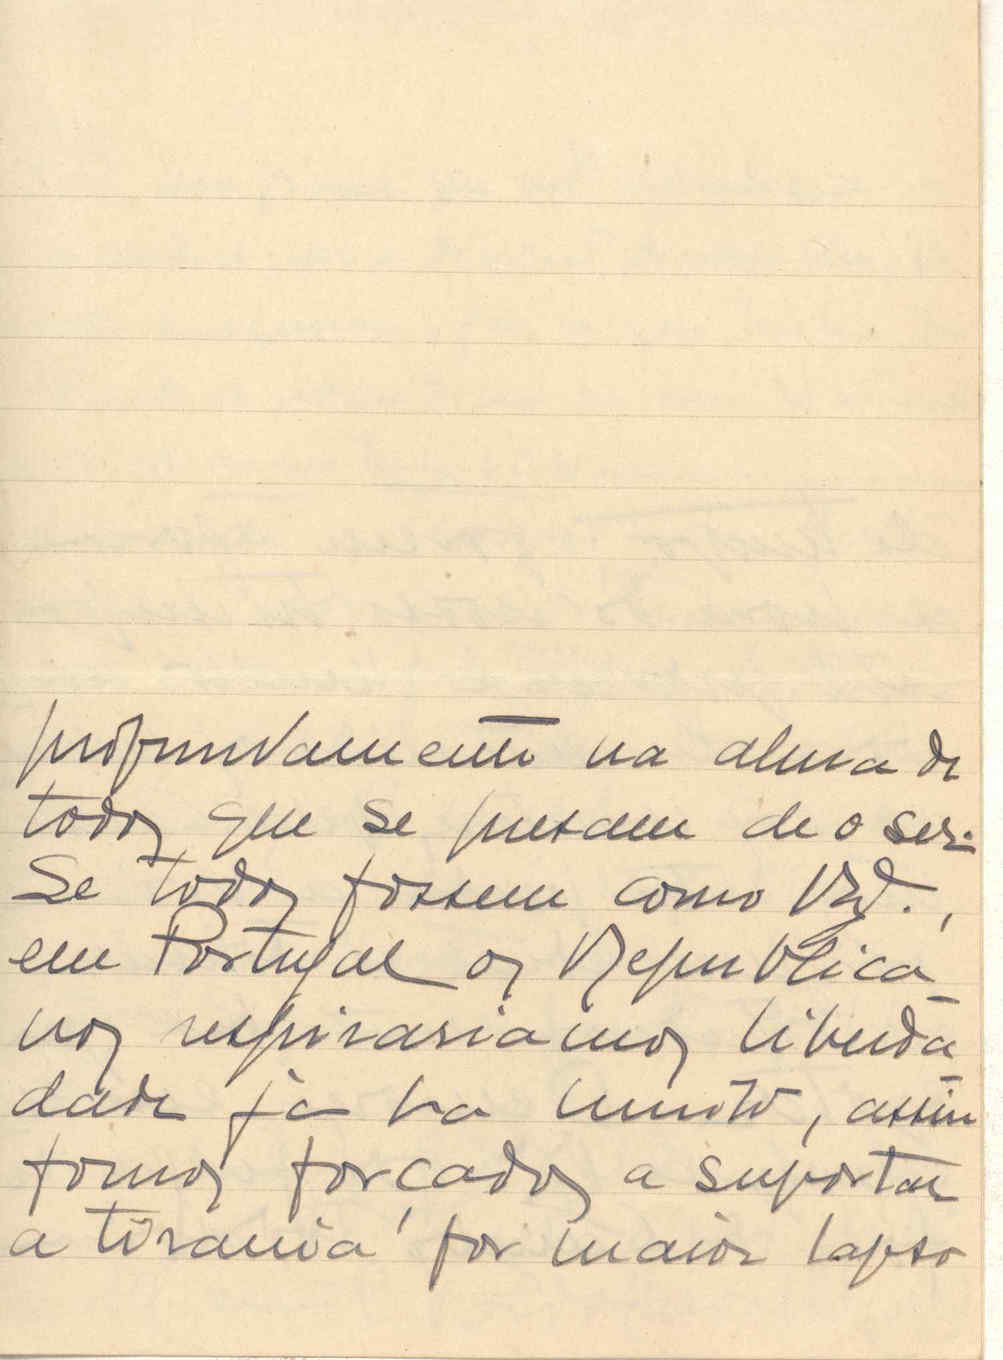 profundamente na alma de
todos que se presam de o ser.
Se todos fossem como V.,
em Portugal os Republica
nos respirariamos liberda-
dade já ha muito, assim
fomos forçados a suportar
a tirania por maior lapso